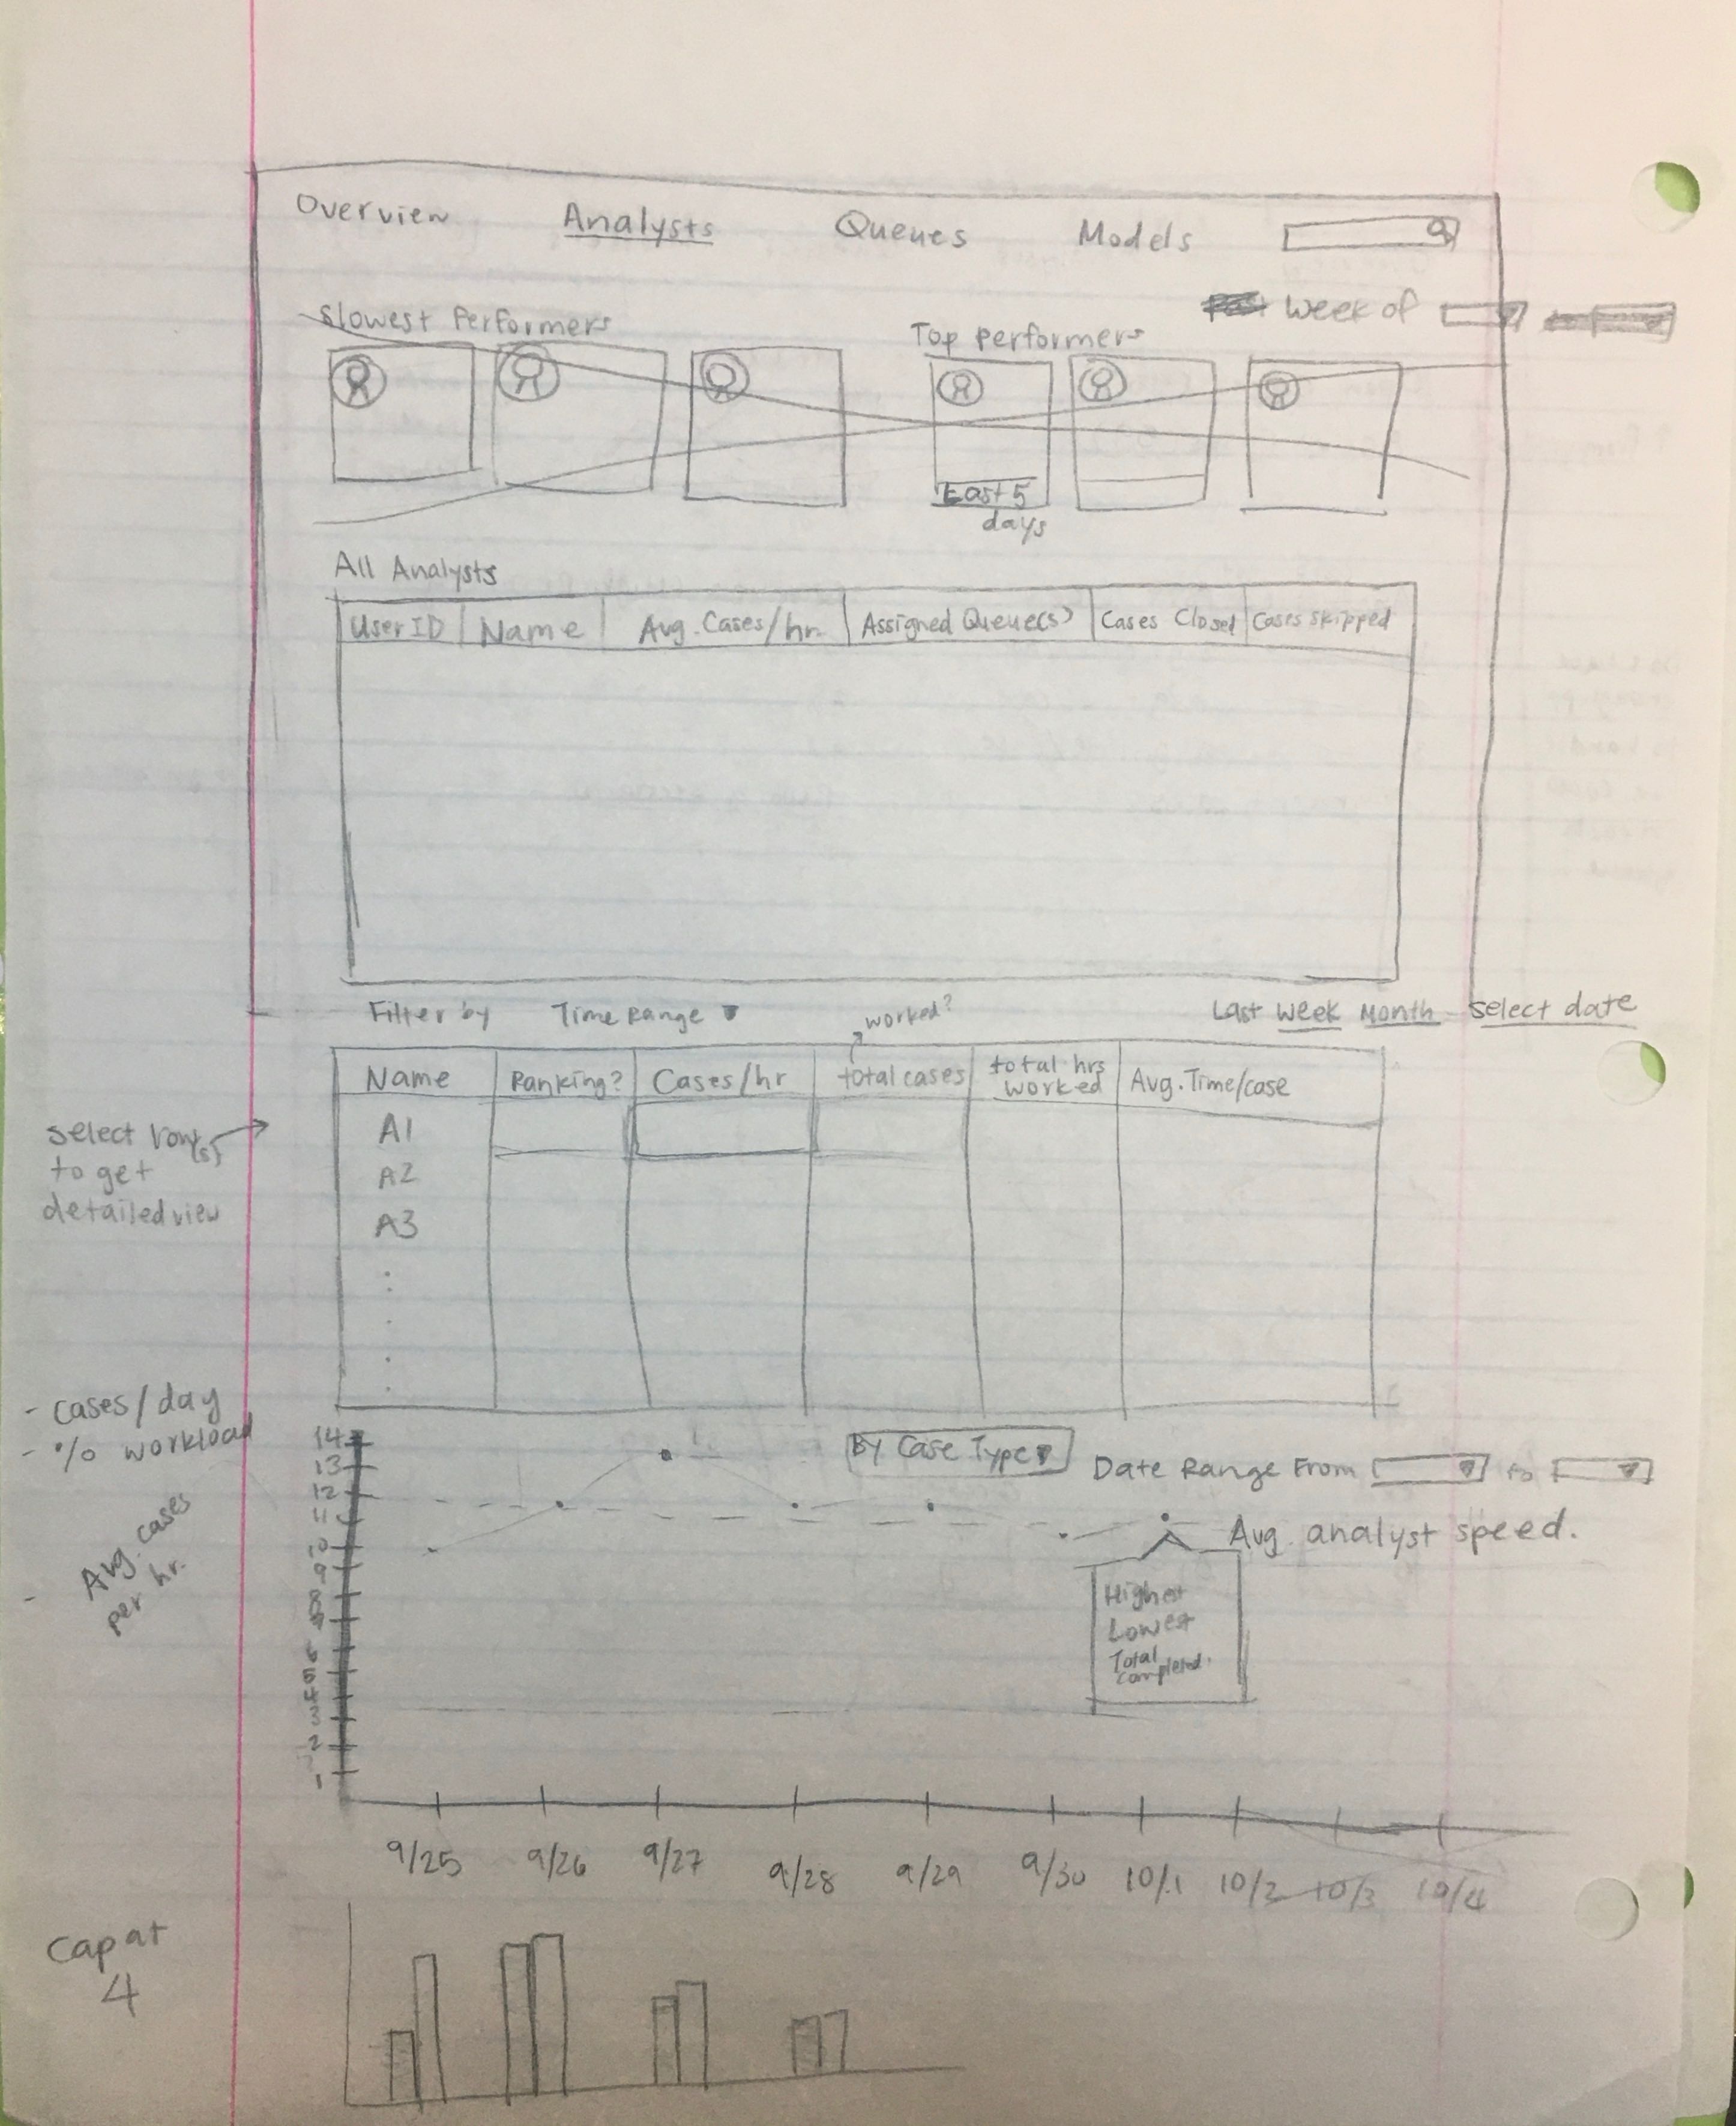 Overview Analysts Queues Models
Week of
Slowest Performers
Top performers
Last 5
days
All Analysts
User ID Name Avg. Cases/hr. Assigned Queue(s) Cases Closed Cases Skipped
Filter by Time Range
worked?
Last Week Month Select date
Name Ranking? Cases/hr total cases total hrs worked Avg. Time/case
select row(s)
to get
detailed view
A1
A2
A3
- cases/day
- % workload
- Avg. cases
per hr.
By Case Type
Date Range From to
Avg. analyst speed.
Highest
Lowest
Total
completed.
14
13
12
11
10
9
8
7
6
5
4
3
2
1
9/25 9/26 9/27 9/28 9/29 9/30 10/1 10/2 10/3 10/4
Cap at
4